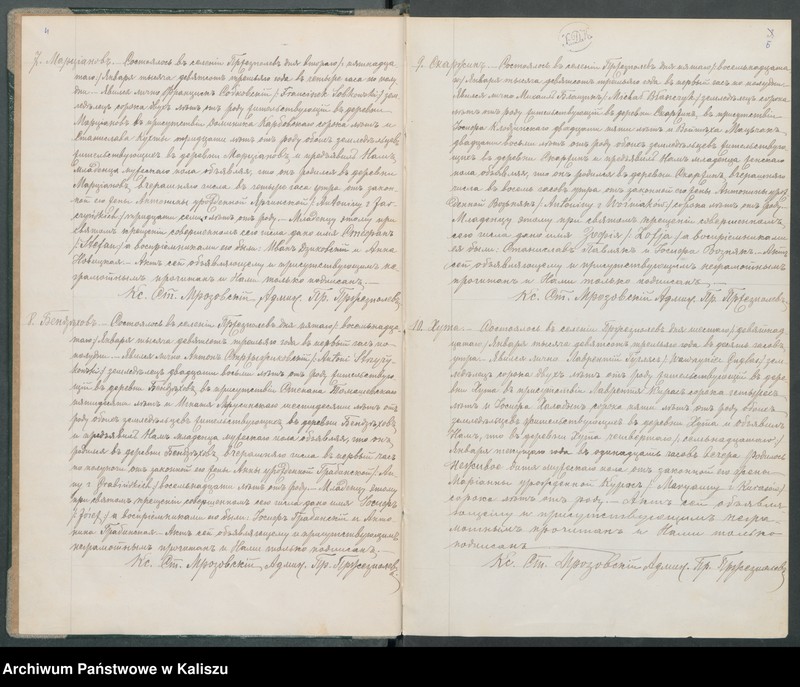 7. Марціановъ. Состоялось въ селеніи дня втораго / пятнадца
таго / Января тысяча девятсотъ третьяго года въ четыре часа по полу
дни. Явился лично Францишекъ / Franciszek / зем
ледѣлецъ сорока двухъ лѣтъ отъ роду жительствующій въ деревни
Марціановъ въ присутствіи сорока лѣтъ и
тридцати лѣтъ отъ роду обоихъ земледѣльцевъ
жительствующихъ въ деревни Марціановъ и предъявилъ Намъ
младенца мужескаго пола объявляя, что онъ родился въ деревни
Марціановъ вчерашняго числа въ четыре часа утра отъ закон
ной его жены Антонины урожденной / Antoniny z
/ тридцати семи лѣтъ отъ роду. Младенцу этому при
святомъ крещеніи совершенномъ сего числа дано имя Стефанъ
/ Stefan / а воспріемниками его были: Иванъ и Анна
Актъ сей объявляющему и присутствующимъ не
грамотнымъ прочитанъ и Нами только подписанъ.
Кс. Ст. Мрозовскій Админ. Пр.
8. Бендзеховъ. Состоялось въ селеніи дня пятаго / восемнадца
таго / Января тысяча девятсотъ третьяго года въ первый часъ по
полудни. Явился лично Антонъ / Antoni
/ земледѣлецъ двадцати восьми лѣтъ отъ роду жительствую
щій въ деревни въ присутствіи Томашевскаго
пятидесяти лѣтъ и Игнатія шестидесяти лѣтъ отъ
роду обоихъ земледѣльцевъ жительствующихъ въ деревни
и предъявилъ Намъ младенца мужескаго пола объявляя, что онъ
родился въ деревни вчерашняго числа въ первый часъ
по полуночи отъ законной его жены Анны урожденной Грабинской / An
ny z Grabińskich / восемнадцати лѣтъ отъ роду. Младенцу этому
при святомъ крещеніи совершенномъ сего числа дано имя Іосифъ
/ Józef / а воспріемниками его были: Іосифъ Грабинскій и Анто
нина Грабинская. Актъ сей объявляющему и присутствующимъ
неграмотнымъ прочитанъ и Нами только подписанъ.
Кс. Ст. Мрозовскій Админ. Пр.
9. Скаржинъ. Состоялось въ селеніи дня пятаго / восемнадцата
го / Января тысяча девятсотъ третьяго года въ первый часъ по полудни.
Явился лично Михаилъ / Michał / земледѣлецъ сорока
лѣтъ отъ роду жительствующій въ деревни Скаржинъ, въ присутствіи
Іосифа двадцати пяти лѣтъ и Войтѣха
двадцати восьми лѣтъ отъ роду обоихъ земледѣльцевъ жительствую
щихъ въ деревни Скаржинъ и предъявилъ Намъ младенца женскаго
пола объявляя, что онъ родился въ деревни Скаржинъ вчерашняго
числа въ восемь часовъ утра отъ законной его жены Антонины урож
денной / Antoniny z / сорока лѣтъ отъ роду.
Младенцу этому при святомъ крещеніи совершенномъ
сего числа дано имя Зофія / Zofja / а воспріемниками
его были: Станиславъ Павлякъ и Іосифа Вознякъ. Актъ
сей объявляющему и присутствующимъ неграмотнымъ
прочитанъ и Нами только подписанъ.
Кс. Ст. Мрозовскій Админ. Пр.
10. Хута. Состоялось въ селеніи дня шестаго / девятнад
цатаго / Января тысяча девятсотъ третьяго года въ десять часовъ
утра. Явился лично Лаврентій / / зем
ледѣлецъ сорока двухъ лѣтъ отъ роду жительствующій въ дерев
ни Хута въ присутствіи Лаврентія сорока четырехъ
лѣтъ и Іосифа сорока пяти лѣтъ отъ роду обоихъ
земледѣльцевъ жительствующихъ въ деревни Хута и объявилъ
Намъ, что въ деревни Хута четвертаго / семнадцатаго /
Января текущаго года въ одинадцать часовъ вечера родилось
неживое дитя мужескаго пола отъ законной его жены
Маріанны урожденной / Maryanny z /
сорока лѣтъ отъ роду. Актъ сей объявля
ющему и присутствующимъ негра
мотнымъ прочитанъ и Нами только
подписанъ
Кс. Ст. Мрозовскій Админ. Пр.
Archiwum Państwowe w Kaliszu